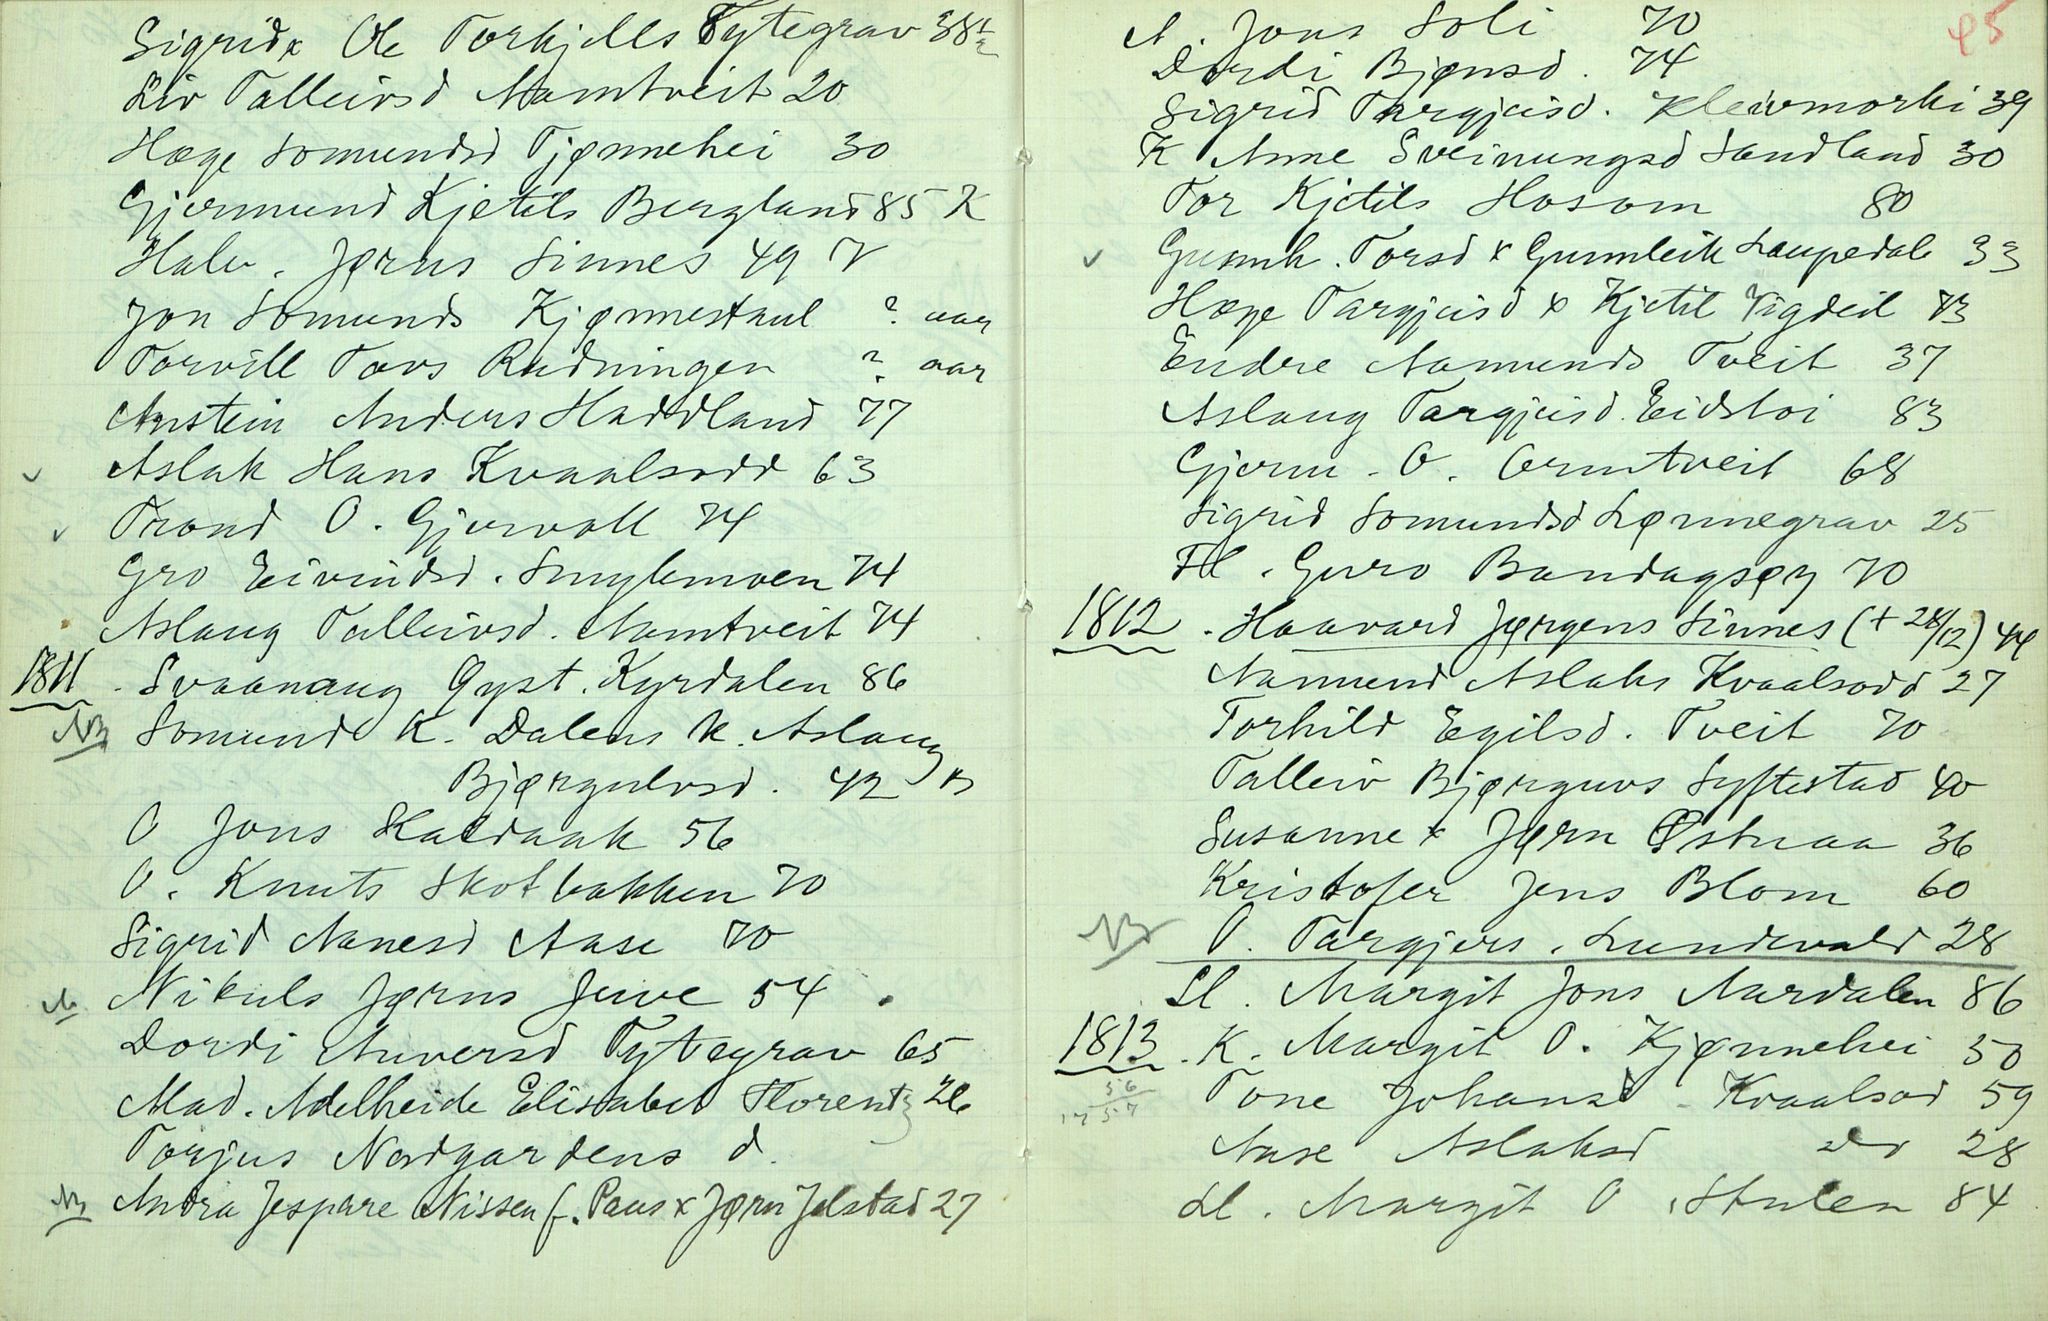 Sigrid x Ole Torkjells Tytegrav 38½
LivТалleivsd Mamtveit 20
Hæge Somundsd Tjønnehei 30
Gjermund Kjetils Bergland 85 K
Halv. Jørns Sinnes 49 V
Jon Somunds Kjønnestaul ? aar
Torvill Tovs Rudningen ? aar
Anstein Anders Haddland 77
Aslak Hans Kvaalsodd 63
Trond O. Gjervoll 74
Gro Eivindsd. Smylemoen 74
Aslaug Talleivsd. Mamtveit 74
1811 . Svaanaug Øyst. Kyrdalen 86
NB Somund K. Dalens k. Aslaug
Bjørgulvsd. 42 B
O Jons Kaldaak 56
O. Knuts Skotbakken 70
Sigrid Aanesd Aase 70
Nikuls Jørns Juve 54 .
Dordi Anversd Tytegrav 65
Mad. Adelheide Elisabet Florentz 26
Torjus Nordgardens d.
NB Andra Jespare Nissen f. Paus x Jørn Jelstad 27
A. Jons Soli 70 95
Dordi Bjønsd. 74
Sigrid Targjeisd. Kleivmorki 39
K Anne Sveinungsd Sandland 30
Tor Kjetils Hosom 80
Gunnh. Torsd x Gunnleik Laupedal 33
Hæge Targjeisd x Kjetil Vigdeil 73
Endre Aamunds Tveit 37
Aslaug Targjeisd. Eidstoi 83
Gjerm. O. Ormtveit 68
Sigrid Somundsd Lønnegrav 25
Fl. Guro Bandagsøy 70
1812 . Haavard Jørgens Sinnes (+ 28/12) 44
Aamund Aslaks Kvaalsodd 27
Torhild Egilsd. Tveit 70
Talleiv Bjørguvs Syftestad 40
Susanne x Jørn Østraa 36
Kristofer Jens Blom 60
NB O. Targjers. Lundevald 28
Sl. Margit Jons Aardalen 86
1813 . K. Margit O. Kjønnehei 50
Tone Johansd. Kvaalsod 59
56
1757
Aase Aslaksd do 28
Sl. Margit O. Stulen 84